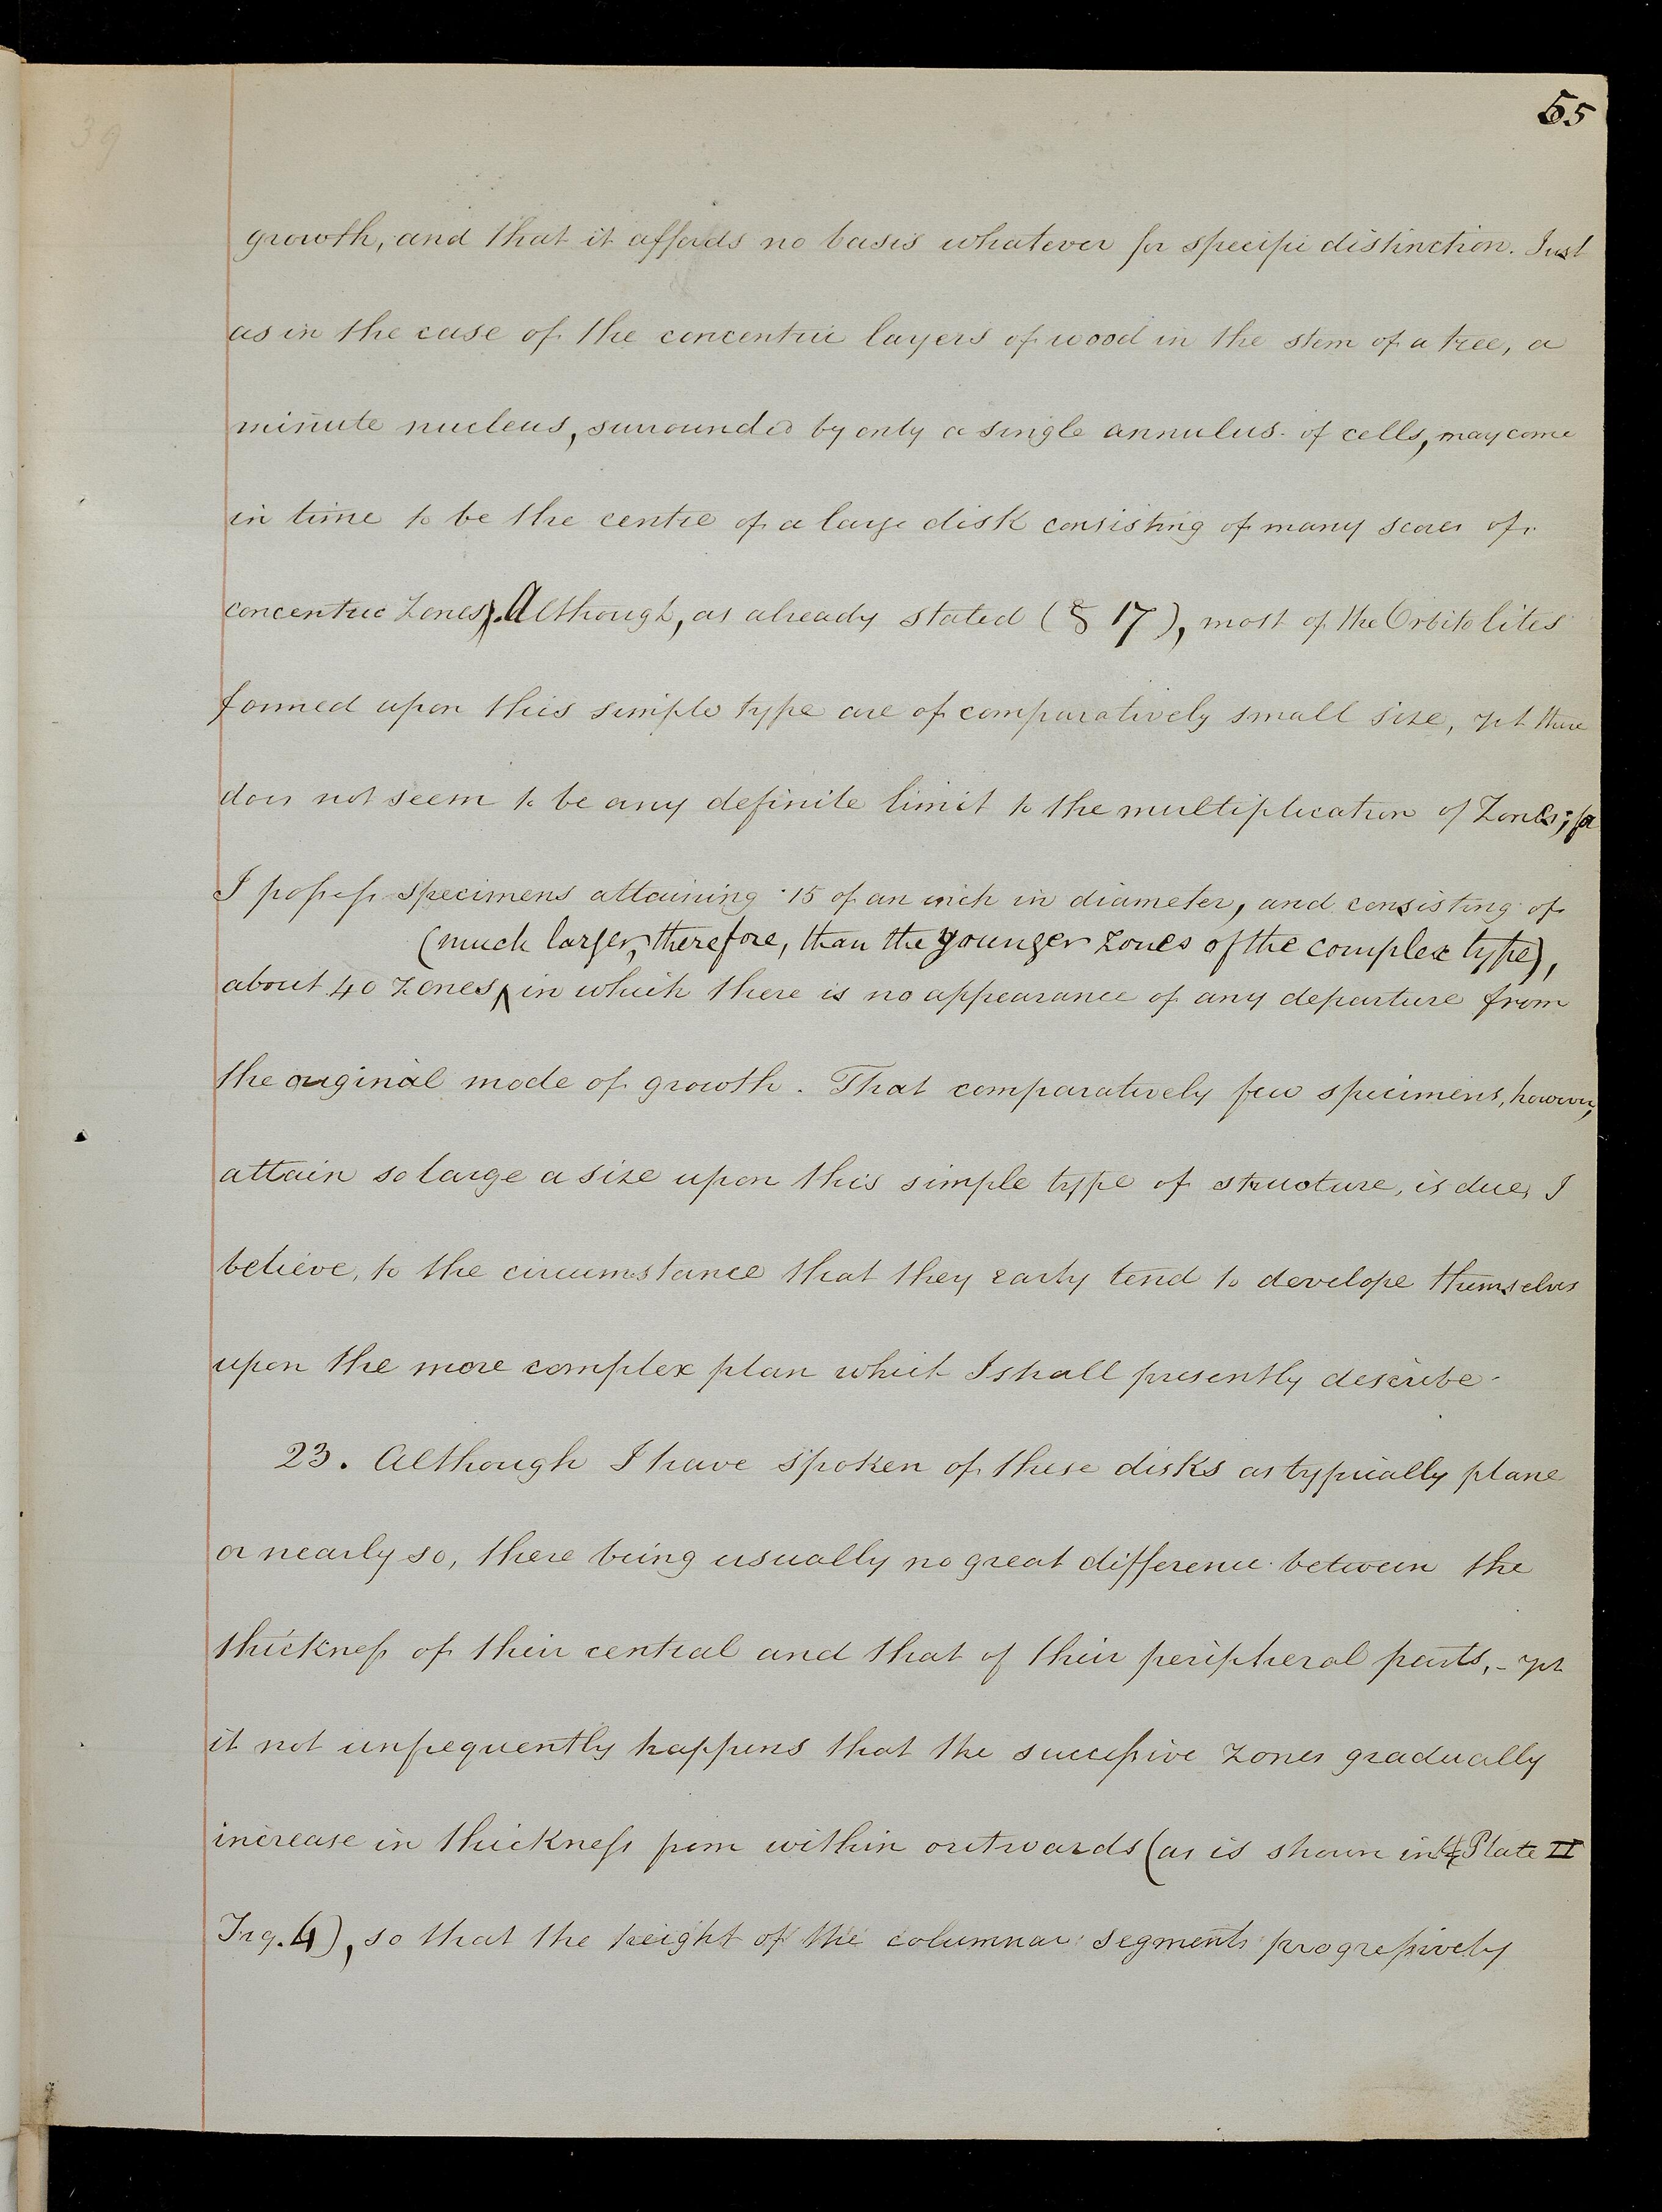 55
39
growth, and that it affords no basis whatever for specific distinction. Just
as in the case of the concentric layers of wood in the stem of a tree, a
minute nucleus, surrounded by only a single annulus of cells, may come
in time to be the centre of a large disk consisting of many scores of
concentric Zones. Although, as already stated (§ 17), most of the Orbitolites
formed upon this simple type are of comparatively small size, yet there
does not seem to be any definite limit to the multiplication of Zones; for
I possess specimens attaining ·15 of an inch in diameter, and consisting of
(much larger, therefore, than the younger zones of the complex type),
about 40 Zones, in which there is no appearance of any departure from
the original mode of growth. That comparatively few specimens, however,
attain so large a size upon this simple type of structure, is due, I
believe, to the circumstance that they early tend to develope themselves
upon the more complex plan which I shall presently describe.
23. Although I have spoken of these disks as typically plane
or nearly so, there being usually no great difference between the
thickness of their central and that of their peripheral parts, - yet
it not unfrequently happens that the successive zones gradually
increase in thickness from within outwards (as is shown in Plate II
Fig. 4), so that the height of the columnar segments progressively